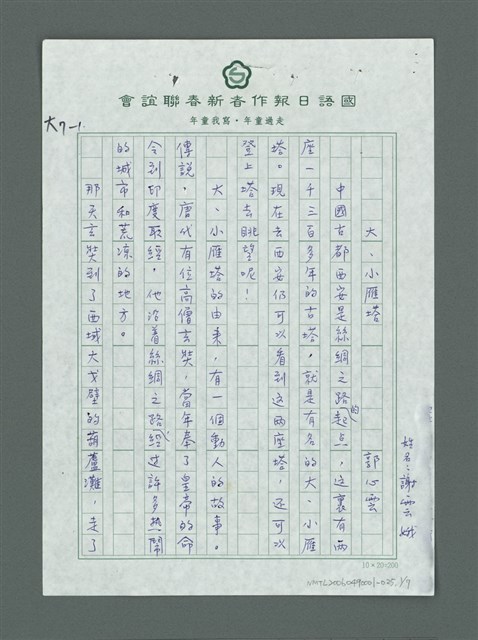 國語日報作者新春聯誼會
走過童年·寫我童年
大7-1
姓名：謝雲娥
大、小雁塔　郭心雲
中國古都西安是絲綢之路的起點，這裏有兩
座一千三百多年的古塔，就是有名的大、小雁
塔。現在去西安仍可以看到這兩座塔，還可以
登上塔去眺望呢！
大、小雁塔的由來，有一個動人的故事。
傳說，唐代有位高僧玄奘，當年奉了皇帝的命
令到印度取經，他沿着絲綢之路經過許多熱鬧
的城市和荒凉的地方。
那天玄奘到了西域大戈壁的葫蘆灘，走了
10×20=200
NMTL20050490001-025, 1/7